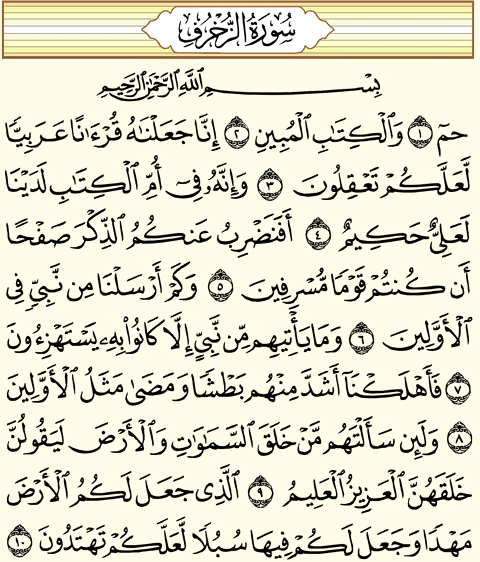 سُورَةُ الزُّخْرُفِ
بِسْمِ اللَّهِ الرَّحْمَٰنِ الرَّحِيمِ
حمٓ ١ وَٱلْكِتَٰبِ ٱلْمُبِينِ ٢ إِنَّا جَعَلْنَٰهُ قُرْءَٰنًا عَرَبِيًّا
لَّعَلَّكُمْ تَعْقِلُونَ ٣ وَإِنَّهُۥ فِىٓ أُمِّ ٱلْكِتَٰبِ لَدَيْنَا
لَعَلِىٌّ حَكِيمٌ ٤ أَفَنَضْرِبُ عَنكُمُ ٱلذِّكْرَ صَفْحًا
أَن كُنتُمْ قَوْمًا مُّسْرِفِينَ ٥ وَكَمْ أَرْسَلْنَا مِن نَّبِىٍّ فِى
ٱلْأَوَّلِينَ ٦ وَمَا يَأْتِيهِم مِّن نَّبِىٍّ إِلَّا كَانُوا۟ بِهِۦ يَسْتَهْزِءُونَ
٧ فَأَهْلَكْنَآ أَشَدَّ مِنْهُم بَطْشًا وَمَضَىٰ مَثَلُ ٱلْأَوَّلِينَ
٨ وَلَئِن سَأَلْتَهُم مَّنْ خَلَقَ ٱلسَّمَٰوَٰتِ وَٱلْأَرْضَ لَيَقُولُنَّ
خَلَقَهُنَّ ٱلْعَزِيزُ ٱلْعَلِيمُ ٩ ٱلَّذِى جَعَلَ لَكُمُ ٱلْأَرْضَ
مَهْدًا وَجَعَلَ لَكُمْ فِيهَا سُبُلًا لَّعَلَّكُمْ تَهْتَدُونَ ١٠